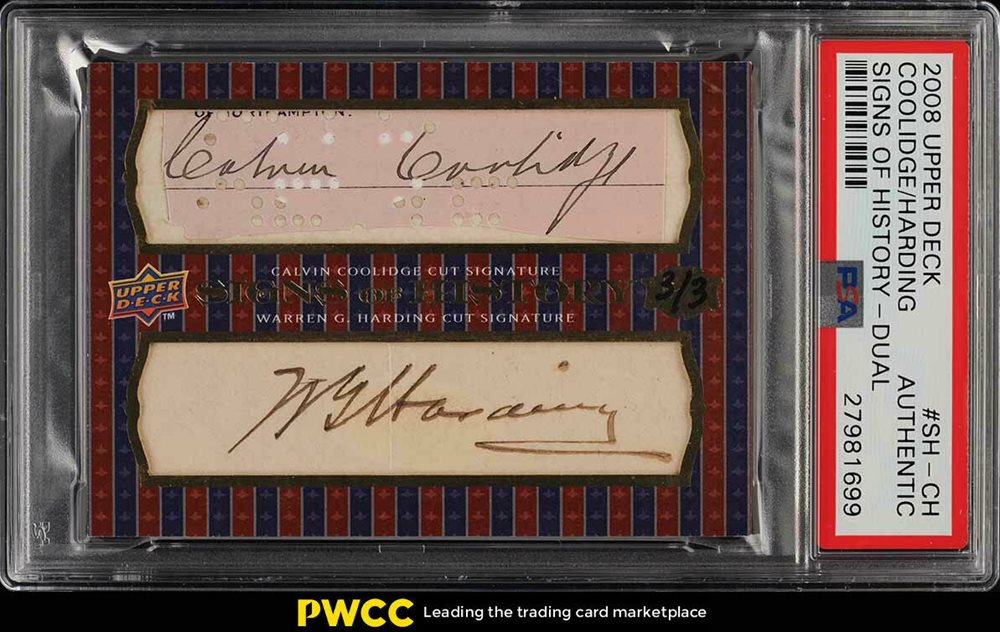 OF NORTHAMPTON.
Calvin Coolidge
CALVIN COOLIDGE CUT SIGNATURE
UPPER
D·E·C·K
TM
SIGNS OF HISTORY
3/3
WARREN G. HARDING CUT SIGNATURE
WG Harding
2008 UPPER DECK #SH – CH
COOLIDGE/HARDING AUTHENTIC
SIGNS OF HISTORY – DUAL
PSA
27981699
PWCC Leading the trading card marketplace